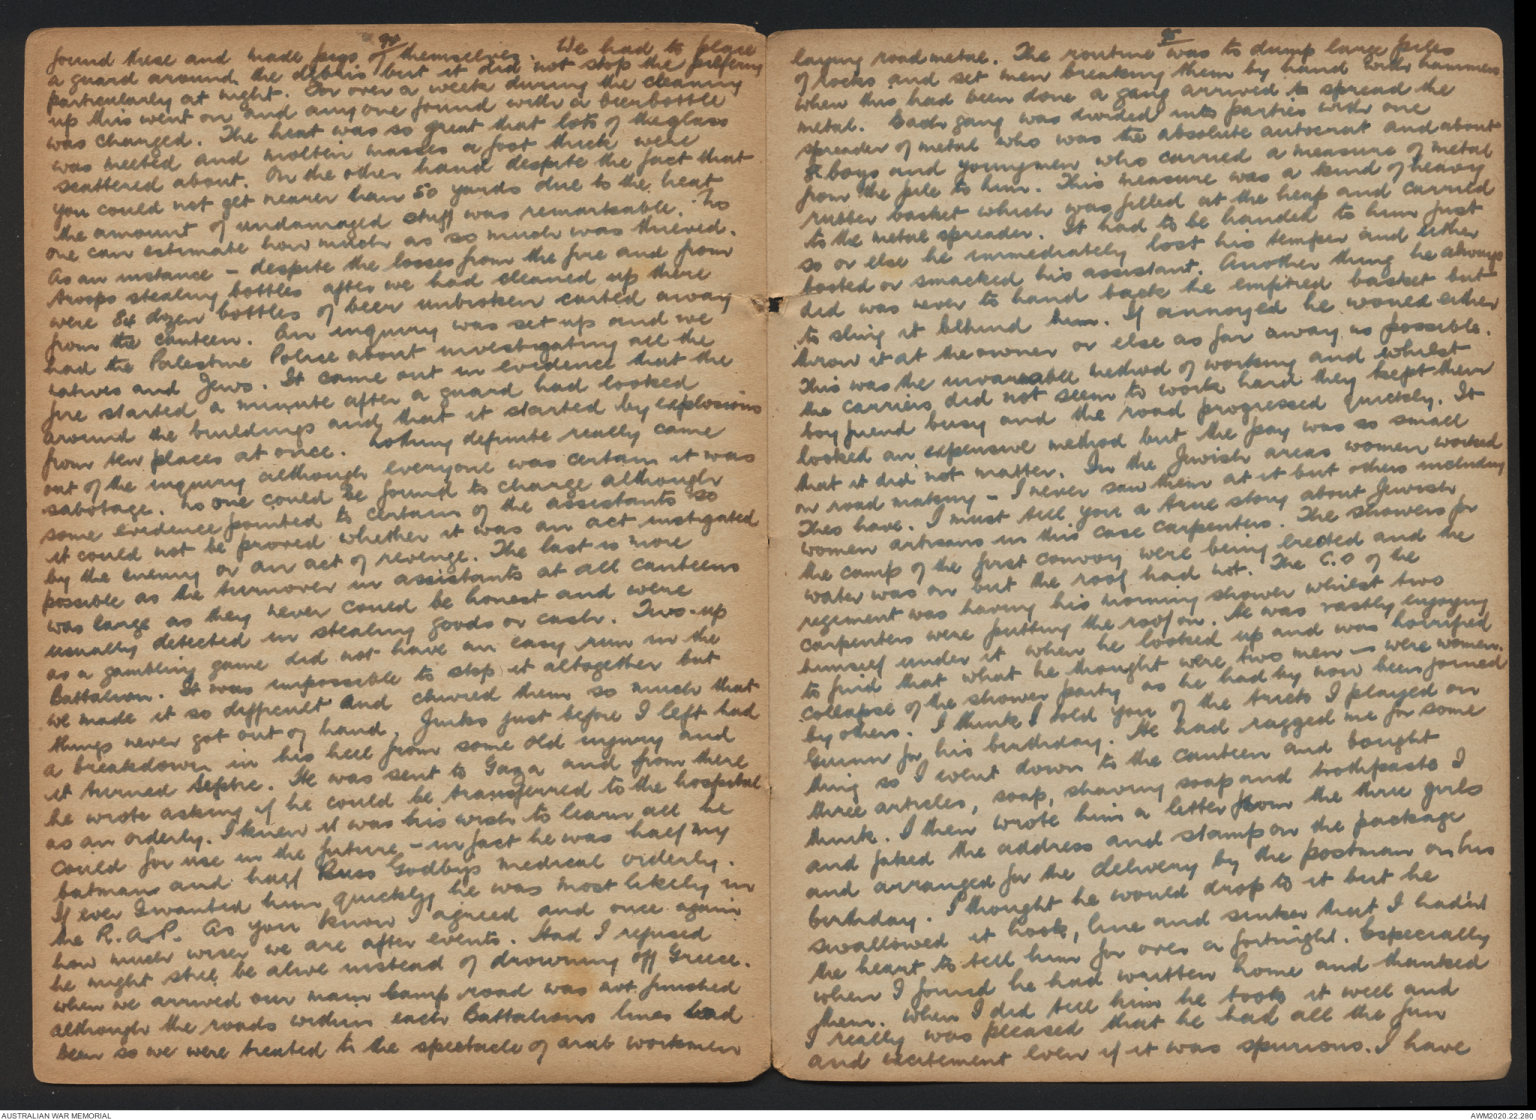 94
found these and made pigs of themselves. We had to place
a guard around the debris but it did not stop the pilfering
particularly at night. For over a week during the cleaning
up this went on and anyone found with a beer bottle
was charged. The heat was so great that lots of the glass
was melted and molten masses a foot thick were
scattered about. On the other hand despite the fact that
you could not get nearer than 50 yards due to the heat
the amount of undamaged stuff was remarkable. No
one can estimate how much as so much was thieved.
As an instance - despite the losses from the fire and from
troops stealing bottles after we had cleaned up there
were 84 dozen bottles of beer unbroken carted away
from the canteen. An inquiry was set up and we
had the Palestine Police about investigating all the
natives and Jews. It came out in evidence that the
fire started a minute after a guard had looked
around the buildings and that it started by explosions
from ten places at once. Nothing definite really came
out of the inquiry although everyone was certain it was
sabotage. No one could be found to charge although
some evidence pointed to certain of the assistants so
it could not be proved whether it was an act instigated
by the enemy or an act of revenge. The last is more
possible as the turnover in assistants at all canteens
was large as they never could be honest and were
usually detected in stealing goods or cash. Two-up
as a gambling game did not have an easy run in the
Battalion. It was impossible to stop it altogether but
we made it so difficult and chivied them so much that
things never got out of hand. Jinks just before I left had
a breakdown in his heel from some old injury and
it turned septic. He was sent to Gaza and from there
he wrote asking if he could be transferred to the hospital
as an orderly. I knew it was his wish to learn all he
could for use in the future - in fact he was half my
batman and half Russ Godbys medical orderly.
If ever I wanted him quickly he was most likely in
the R.A.P. As you know I agreed and once again
how much wiser we are after events. Had I refused
he might still be alive instead of drowning off Greece.
When we arrived our main Camp road was not finished
although the roads within each Battalions lines had
been so we were treated to the spectacle of arab workmen
95
laying road metal. The routine was to dump large piles
of rocks and set men breaking them by hand with hammers
when this had been done a gang arrived to spread the
metal. Each gang was divided into parties with one
spreader of metal who was the absolute autocrat and about
8 boys and young men who carried a measure of metal
from the pile to him. This measure was a kind of heavy
rubber basket which was filled at the heap and carried
to the metal spreader. It had to be handed to him just
so or else he immediately lost his temper and either
booted or smacked his assistant. Another thing he always
did was never to hand back the emptied basket but
to sling it behind him. If annoyed he would either
throw it at the owner or else as far away as possible.
This was the invareable method of working and whilst
the carriers did not seem to work hard they kept their
boy friend busy and the road progressed quickly. It
looked an expensive method but the pay was so small
that it did not matter. In the Jewish areas women worked
on road making - I never saw them at it but others including
Thes have. I must tell you a true story about Jewish
women artisans in this case carpenters. The showers for
the camp of the first convoy were being erected and the
water was on but the roof had not. The C.O of the
regiment was having his morning shower whilst two
carpenters were putting the roof on. He was vastly enjoying
himself under it when he looked up and was horrified
to find that what he thought were two men - were women.
Collapse of the shower party as he had by now been joined
by others. I think I told you of the tricks I played on
Guinn for his birthday. He had ragged me for some
thing so I went down to the canteen and bought
three articles, soap, shaving soap and toothpaste I
think. I then wrote him a letter from the three girls
and faked the address and stamps on the package
and arranged for the delivery by the postman on his
birthday. I thought he would drop to it but he
swallowed it hook, line and sinker that I hadn't
the heart to tell him for over a fortnight. Especially
when I found he had written home and thanked
them. When I did tell him he took it well and
I really was pleased that he had all the fun
and excitement even if it was spurious. I have
AUSTRALIAN WAR MEMORIAL
AWM2020.22.280